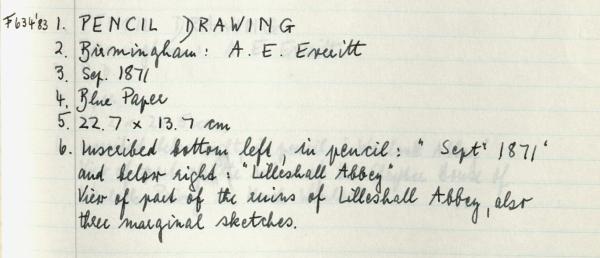 F634'83 1. PENCIL DRAWING
2. Birmingham: A. E. Everitt
3. Sep. 1871
4. Blue Paper
5. 22.7 x 13.7 cm
6. Inscribed bottom left, in pencil: "Septr 1871"
and below right: "Lilleshall Abbey"
View of part of the ruins of Lilleshall Abbey, also
three marginal sketches.